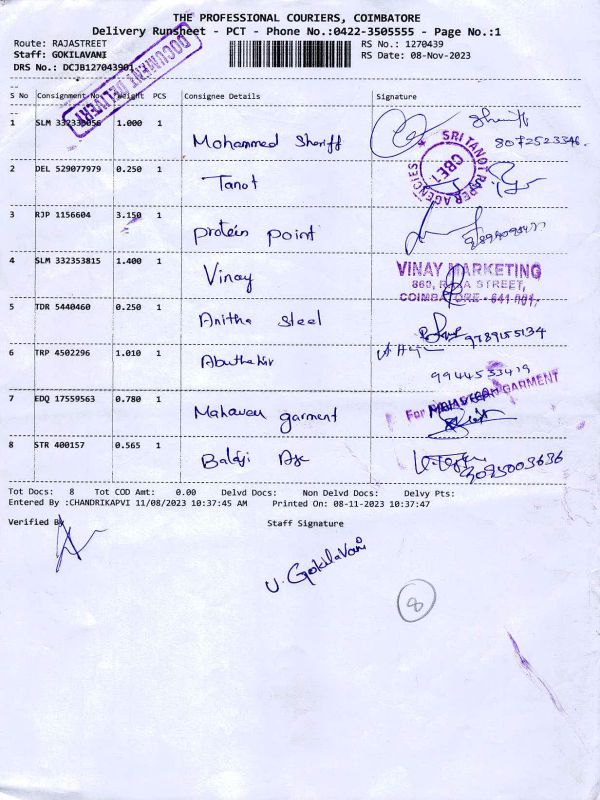 THE PROFESSIONAL COURIERS, COIMBATORE
Delivery Runsheet - PCT - Phone No.:0422-3505555 - Page No.:1
Route: RAJASTREET RS No.: 1270439
Staff: GOKILAVANI RS Date: 08-Nov-2023
DRS No.: DCJB127043901
DOCUMENT DELIVERY
S No Consignment No Weight PCS Consignee Details Signature
1 SLM 332333056 1.000 1 Mohammed Sheriff Sheriff
8072523346.
2 DEL 529077979 0.250 1 Tanot
SRI TANOT PAPER AGENCIES
CBE-1
3 RJP 1156604 3.150 1 protein point
4 SLM 332353815 1.400 1 Vinay
VINAY MARKETING
860, RAJA STREET,
COIMBATORE - 641 001.
5 TDR 5440460 0.250 1 Anitha steel
9789155134
6 TRP 4502296 1.010 1 Abuthahir
9944533419
7 EDQ 17559563 0.780 1 Mahaveer garment
For MAHAVEER GARMENT
8 STR 400157 0.565 1 Balaji Age
Tot Docs: 8 Tot COD Amt: 0.00 Delvd Docs: Non Delvd Docs: Delvy Pts:
Entered By :CHANDRIKAPVI 11/08/2023 10:37:45 AM Printed On: 08-11-2023 10:37:47
Verified By Staff Signature
U. Gokilavani
8